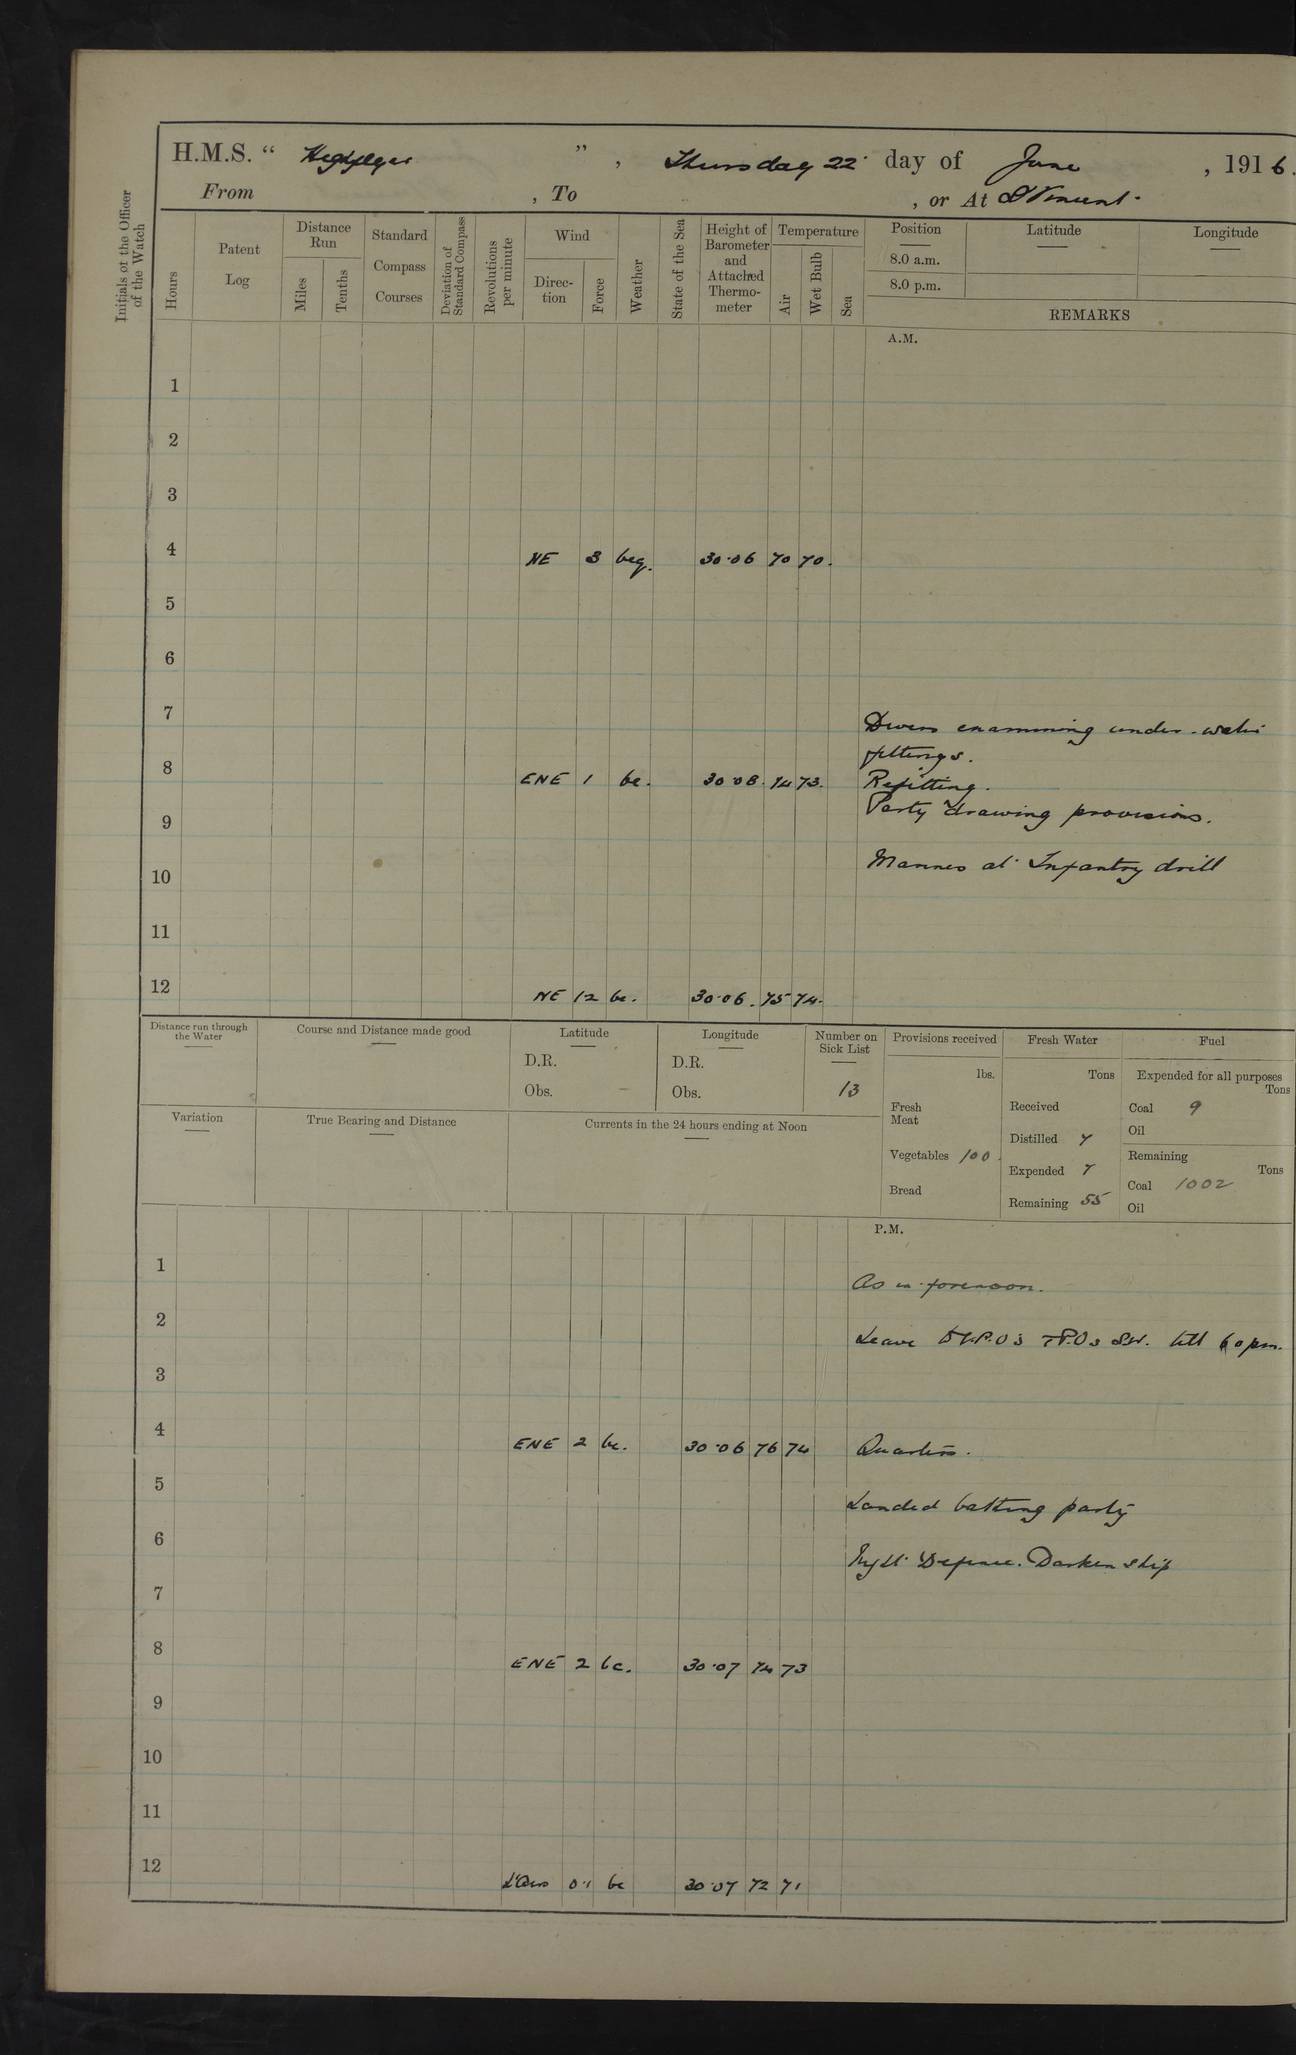 H.M.S. “ Highflyer ” , Thursday 22 day of June , 1916.
From , To , or At St Vincent.
Initials of the Officer of the Watch
Hours
Patent Log
Distance Run
Miles
Tenths
Standard Compass Courses
Deviation of Standard Compass
Revolutions per minute
Wind
Direc-tion
Force
Weather
State of the Sea
Height of Barometer and Attached Thermo-meter
Temperature
Air
Wet Bulb
Sea
Position Latitude Longitude
8.0 a.m.
8.0 p.m.
REMARKS
A.M.
1
2
3
4 NE 3 bcq. 30.06 70 70.
5
6
7 Divers examining under-water
fittings.
8 ENE 1 bc. 30.08. 74 73. Refitting.
9 Party drawing provisions.
10 Marines at Infantry drill
11
12 NE 1-2 bc. 30.06. 75 74.
Distance run through the Water
Course and Distance made good
Latitude
D.R.
Obs.
Longitude
D.R.
Obs.
Number on Sick List
13
Provisions received
lbs.
Fresh Meat
Vegetables 100.
Bread
Fresh Water
Tons
Received
Distilled 7
Expended 7
Remaining 55
Fuel
Expended for all purposes
Tons
Coal 9
Oil
Remaining
Tons
Coal 1002
Oil
Variation
True Bearing and Distance
Currents in the 24 hours ending at Noon
P.M.
1 As in forenoon.
2 Leave to C.P.Os P.Os till 6.0 pm.
3
4 ENE 2 bc. 30.06 76 74 Quarters.
5 Landed bathing party
6 Night Defence. Darken ship
7
8 ENE 2 bc. 30.07 74 73
9
10
11
12 L'airs 0.1 bc 30.07 72 71